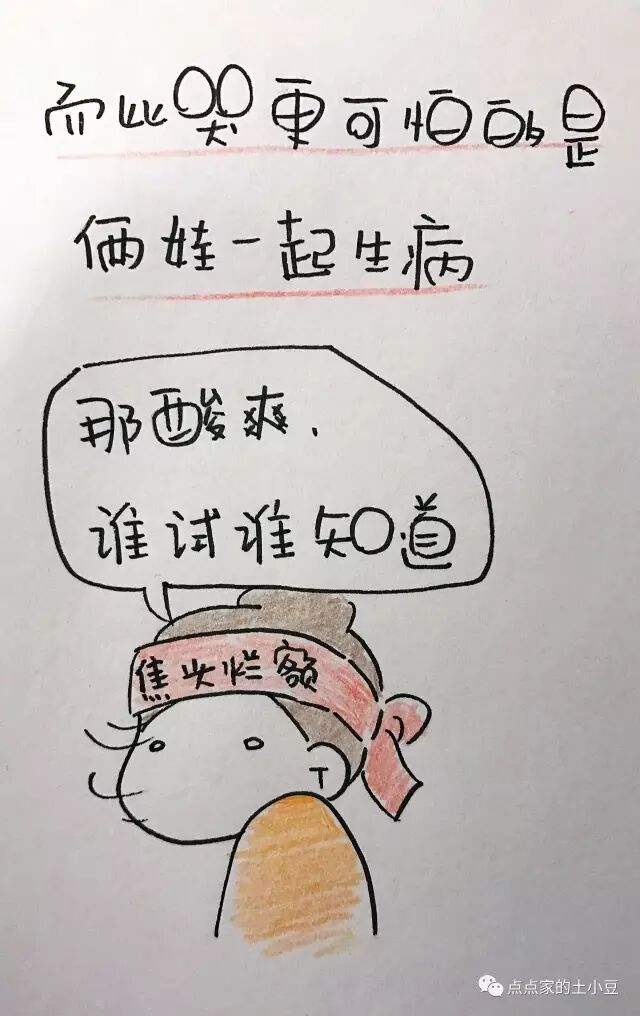 而比哭更可怕的是
俩娃一起生病
那酸爽,
谁试谁知道
焦头烂额
点点家的土小豆